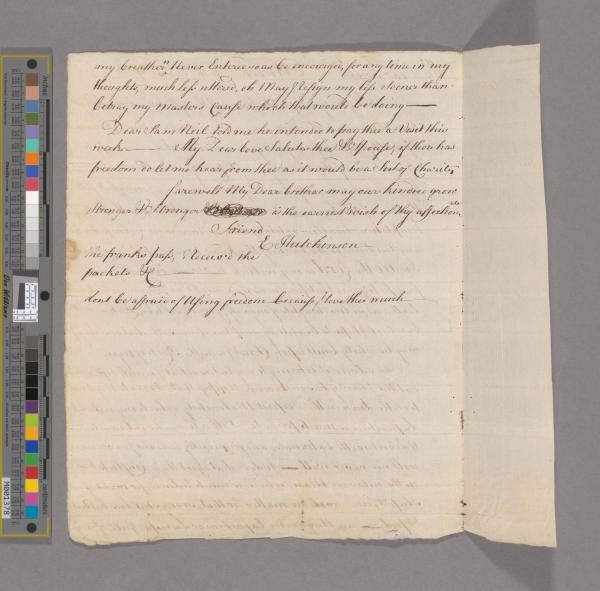 my breather Never Enterd so as be encouraged, for any time in my
thoughts, much less uttered, oh may I resign my life sooner than
betray my Masters Cause which that would be doing —
Dear Sam Neil told me he intended to pay thee a Visit this
week — My Dear love Salutes thee & Spouse, if thou has
freedom do let me hear from thee as it would be a Sort of Charity
farewell My Dear brother may our kindred grow
Stronger & Stronger is the earnest Wish of thy affection
Friend
E Hutchinson
the franks pass, I Receiv'd the
packets &c
dont be affraid of Using freedom becaus I love thee much
inches
centimeters
Don Williams
M001378